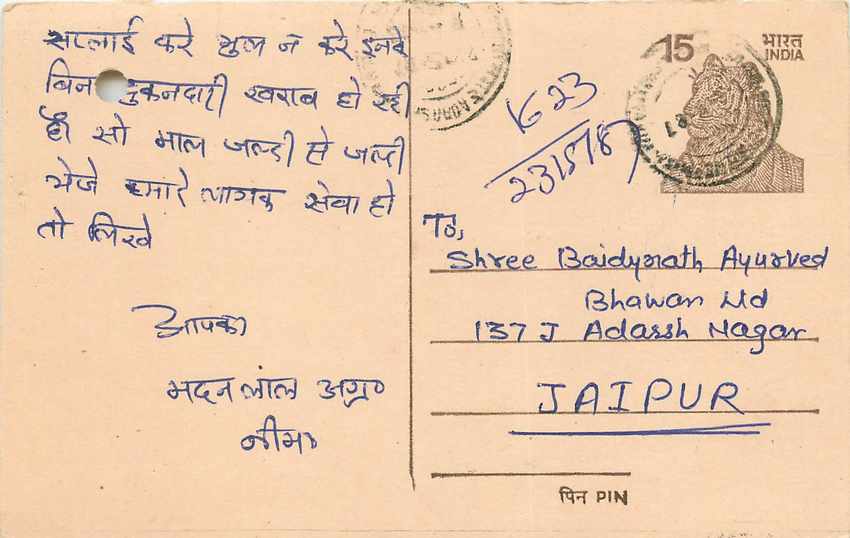 सप्लाई करे भुल न करे इनके
बिना दुकानदारी खराब हो रही
है सो माल जल्दी से जल्दी
भेजे हमारे लायक सेवा हो
तो लिखे
आपका
मदन लाल अग्र०
नीम०
15
भारत
INDIA
1623
23/5/8
To,
Shree Baidynath Ayurved
Bhawan Ltd
137 J Adarsh Nagar
JAIPUR
पिन PIN